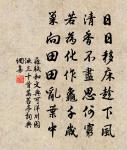 日日移床趁下風
清香不盡思何窮
若為化作龜千歲
巢向田田亂葉中
蘇軾和文與可洋川園
池三十首菡萏亭